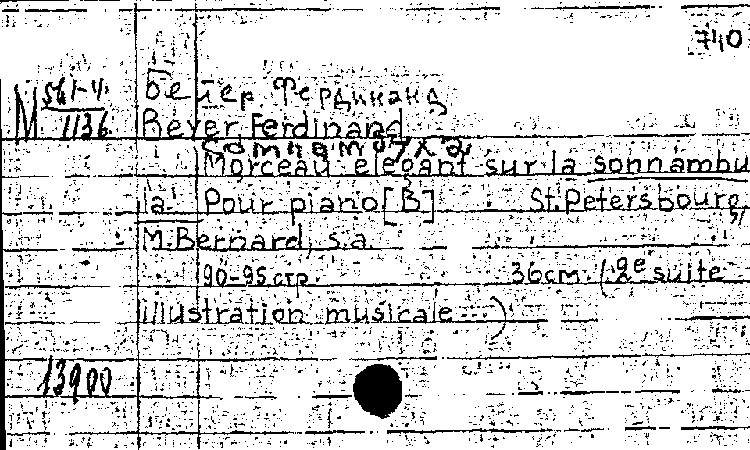 740
М 561-4.
1136
Бейер Фердинанд
Beyer, Ferdinand
Сомнамбула
Morceau elegant sur la sonnambu
la Pour piano [B] St. Petersbourg,
M. Bernard, s.a.
90-95 стр. 36 cm. (2e suite
illustration musicale...)
13900